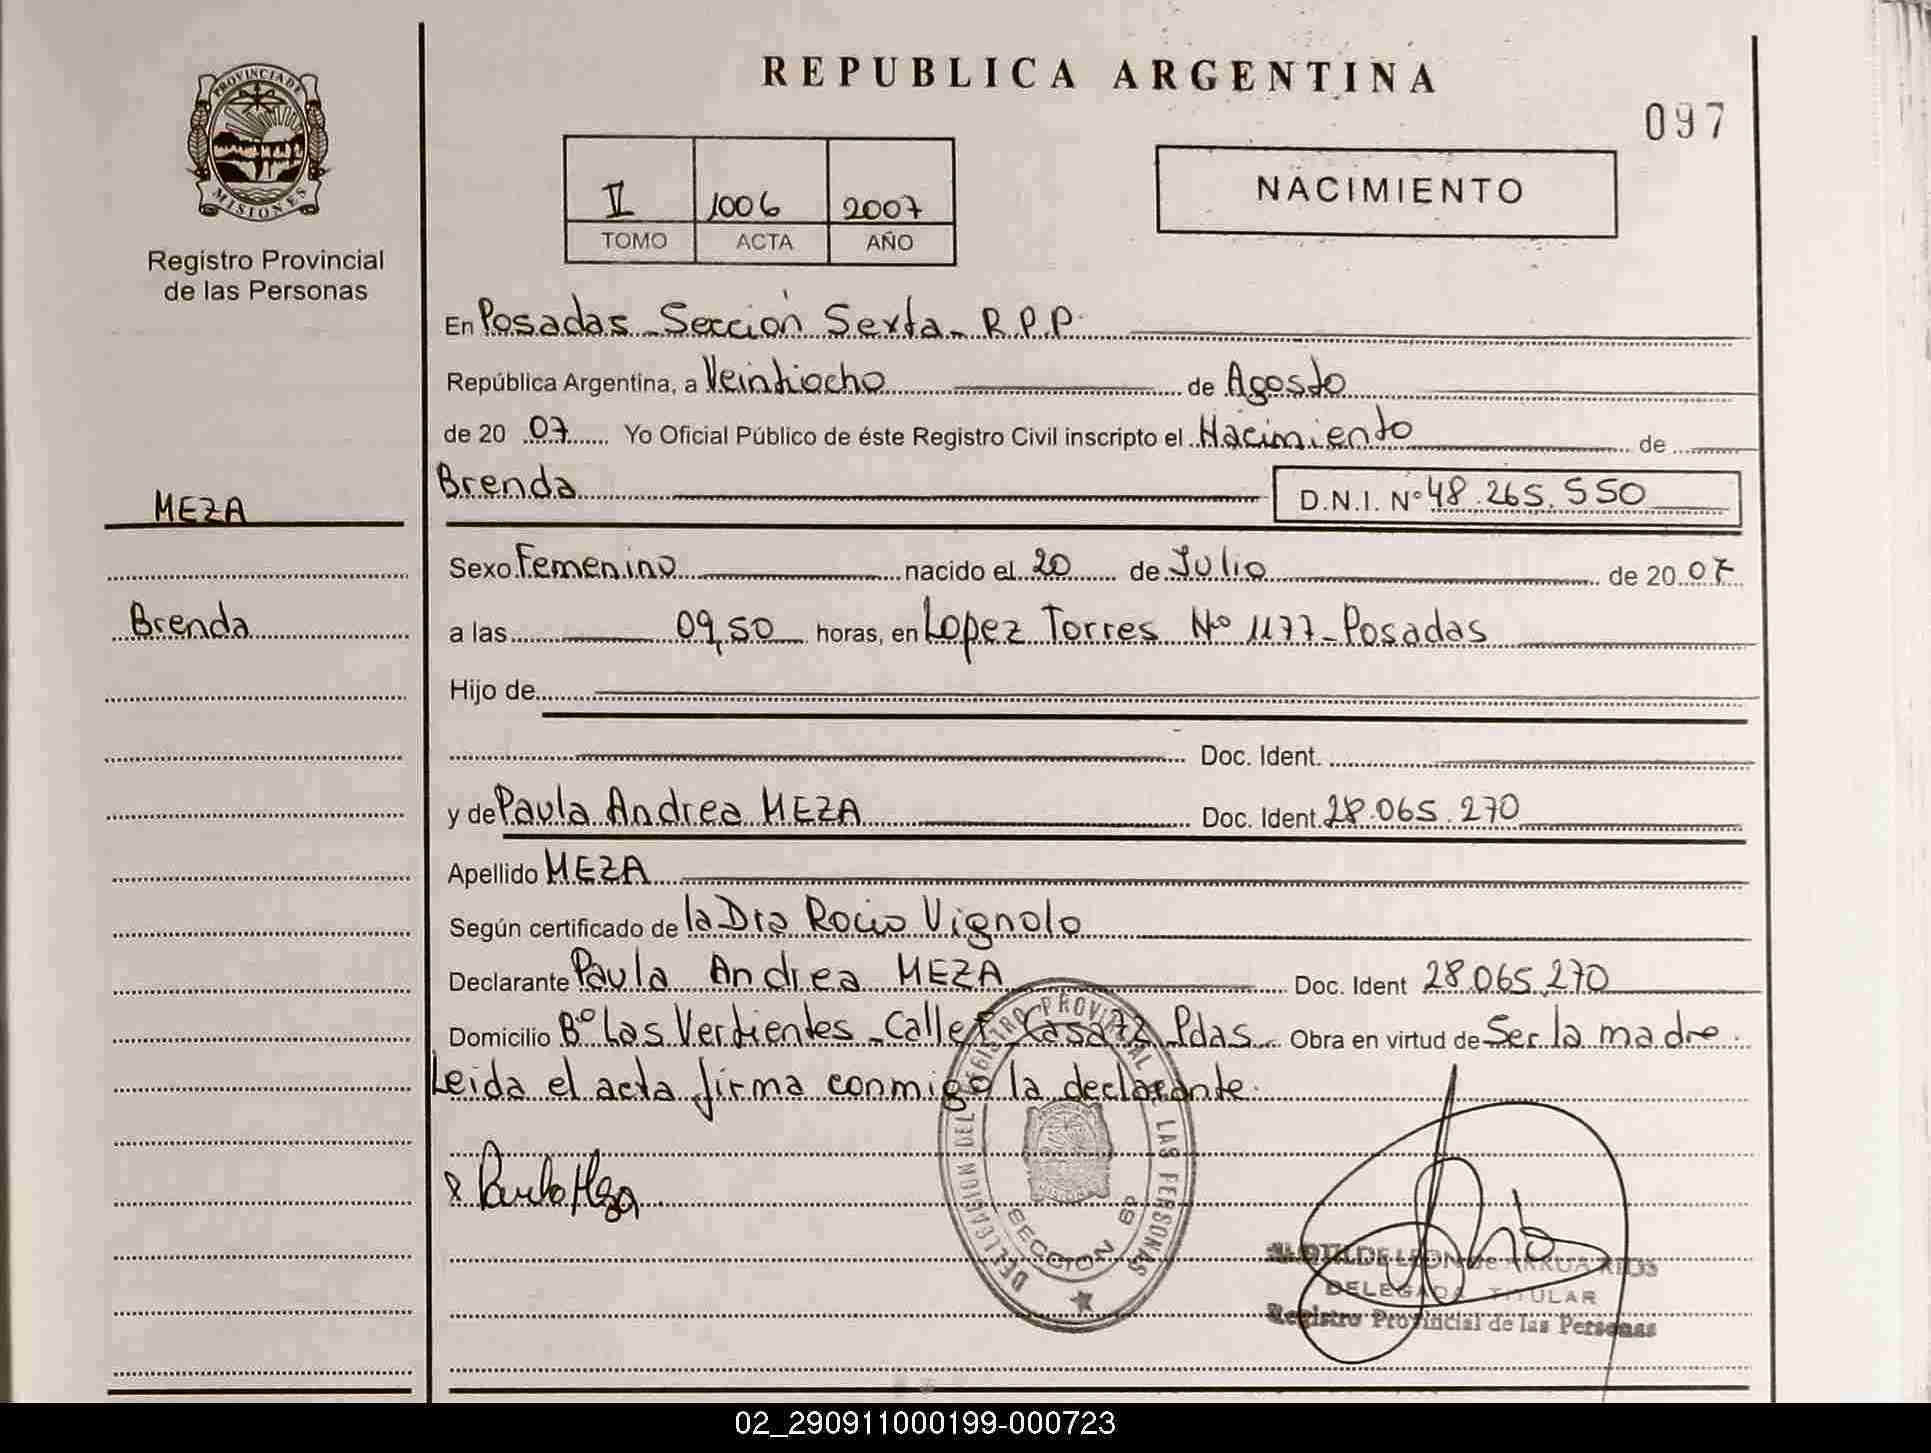 REPUBLICA ARGENTINA
097
PROVINCIA DE
MISIONES
Registro Provincial
de las Personas
II 1006 2007
TOMO ACTA AÑO
NACIMIENTO
En Posadas - Sección Sexta - R.P.P.
República Argentina, a Veintiocho de Agosto
de 20 07 Yo Oficial Público de éste Registro Civil inscripto el Nacimiento de
Brenda D.N.I. Nº 48.265.550
MEZA
Sexo Femenino nacido el 20 de Julio de 20 07
Brenda
a las 09,50 horas, en Lopez Torres Nº 1177 - Posadas
Hijo de
Doc. Ident.
y de Paula Andrea MEZA Doc. Ident. 28.065.270
Apellido MEZA
Según certificado de la Dra Rocio Vignolo
Declarante Paula Andrea MEZA Doc. Ident 28.065.270
Domicilio Bº Las Vertientes - Calle E Casa 72 Pdas. Obra en virtud de Ser la madre.
Leida el acta firma conmigo la declarante.
Paula Meza
DELEGACION DEL REGISTRO PROVINCIAL LAS PERSONAS
SECCION 6ª
LEON de ARRUA RIOS
DELEGADA TITULAR
Registro Provincial de las Personas
02_290911000199-000723